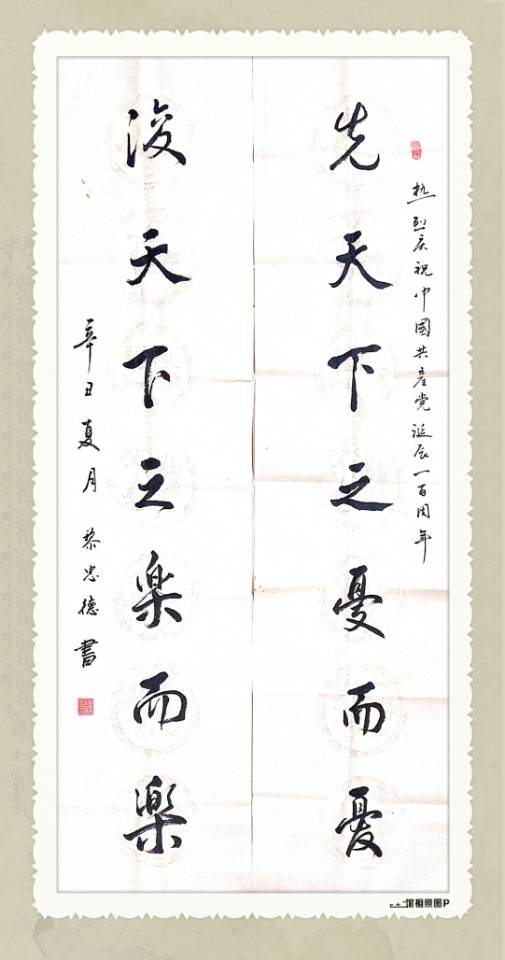 热烈庆祝中國共產党诞辰一百周年
先天下之憂而憂
後天下之楽而楽
辛丑夏月 黎忠德 書